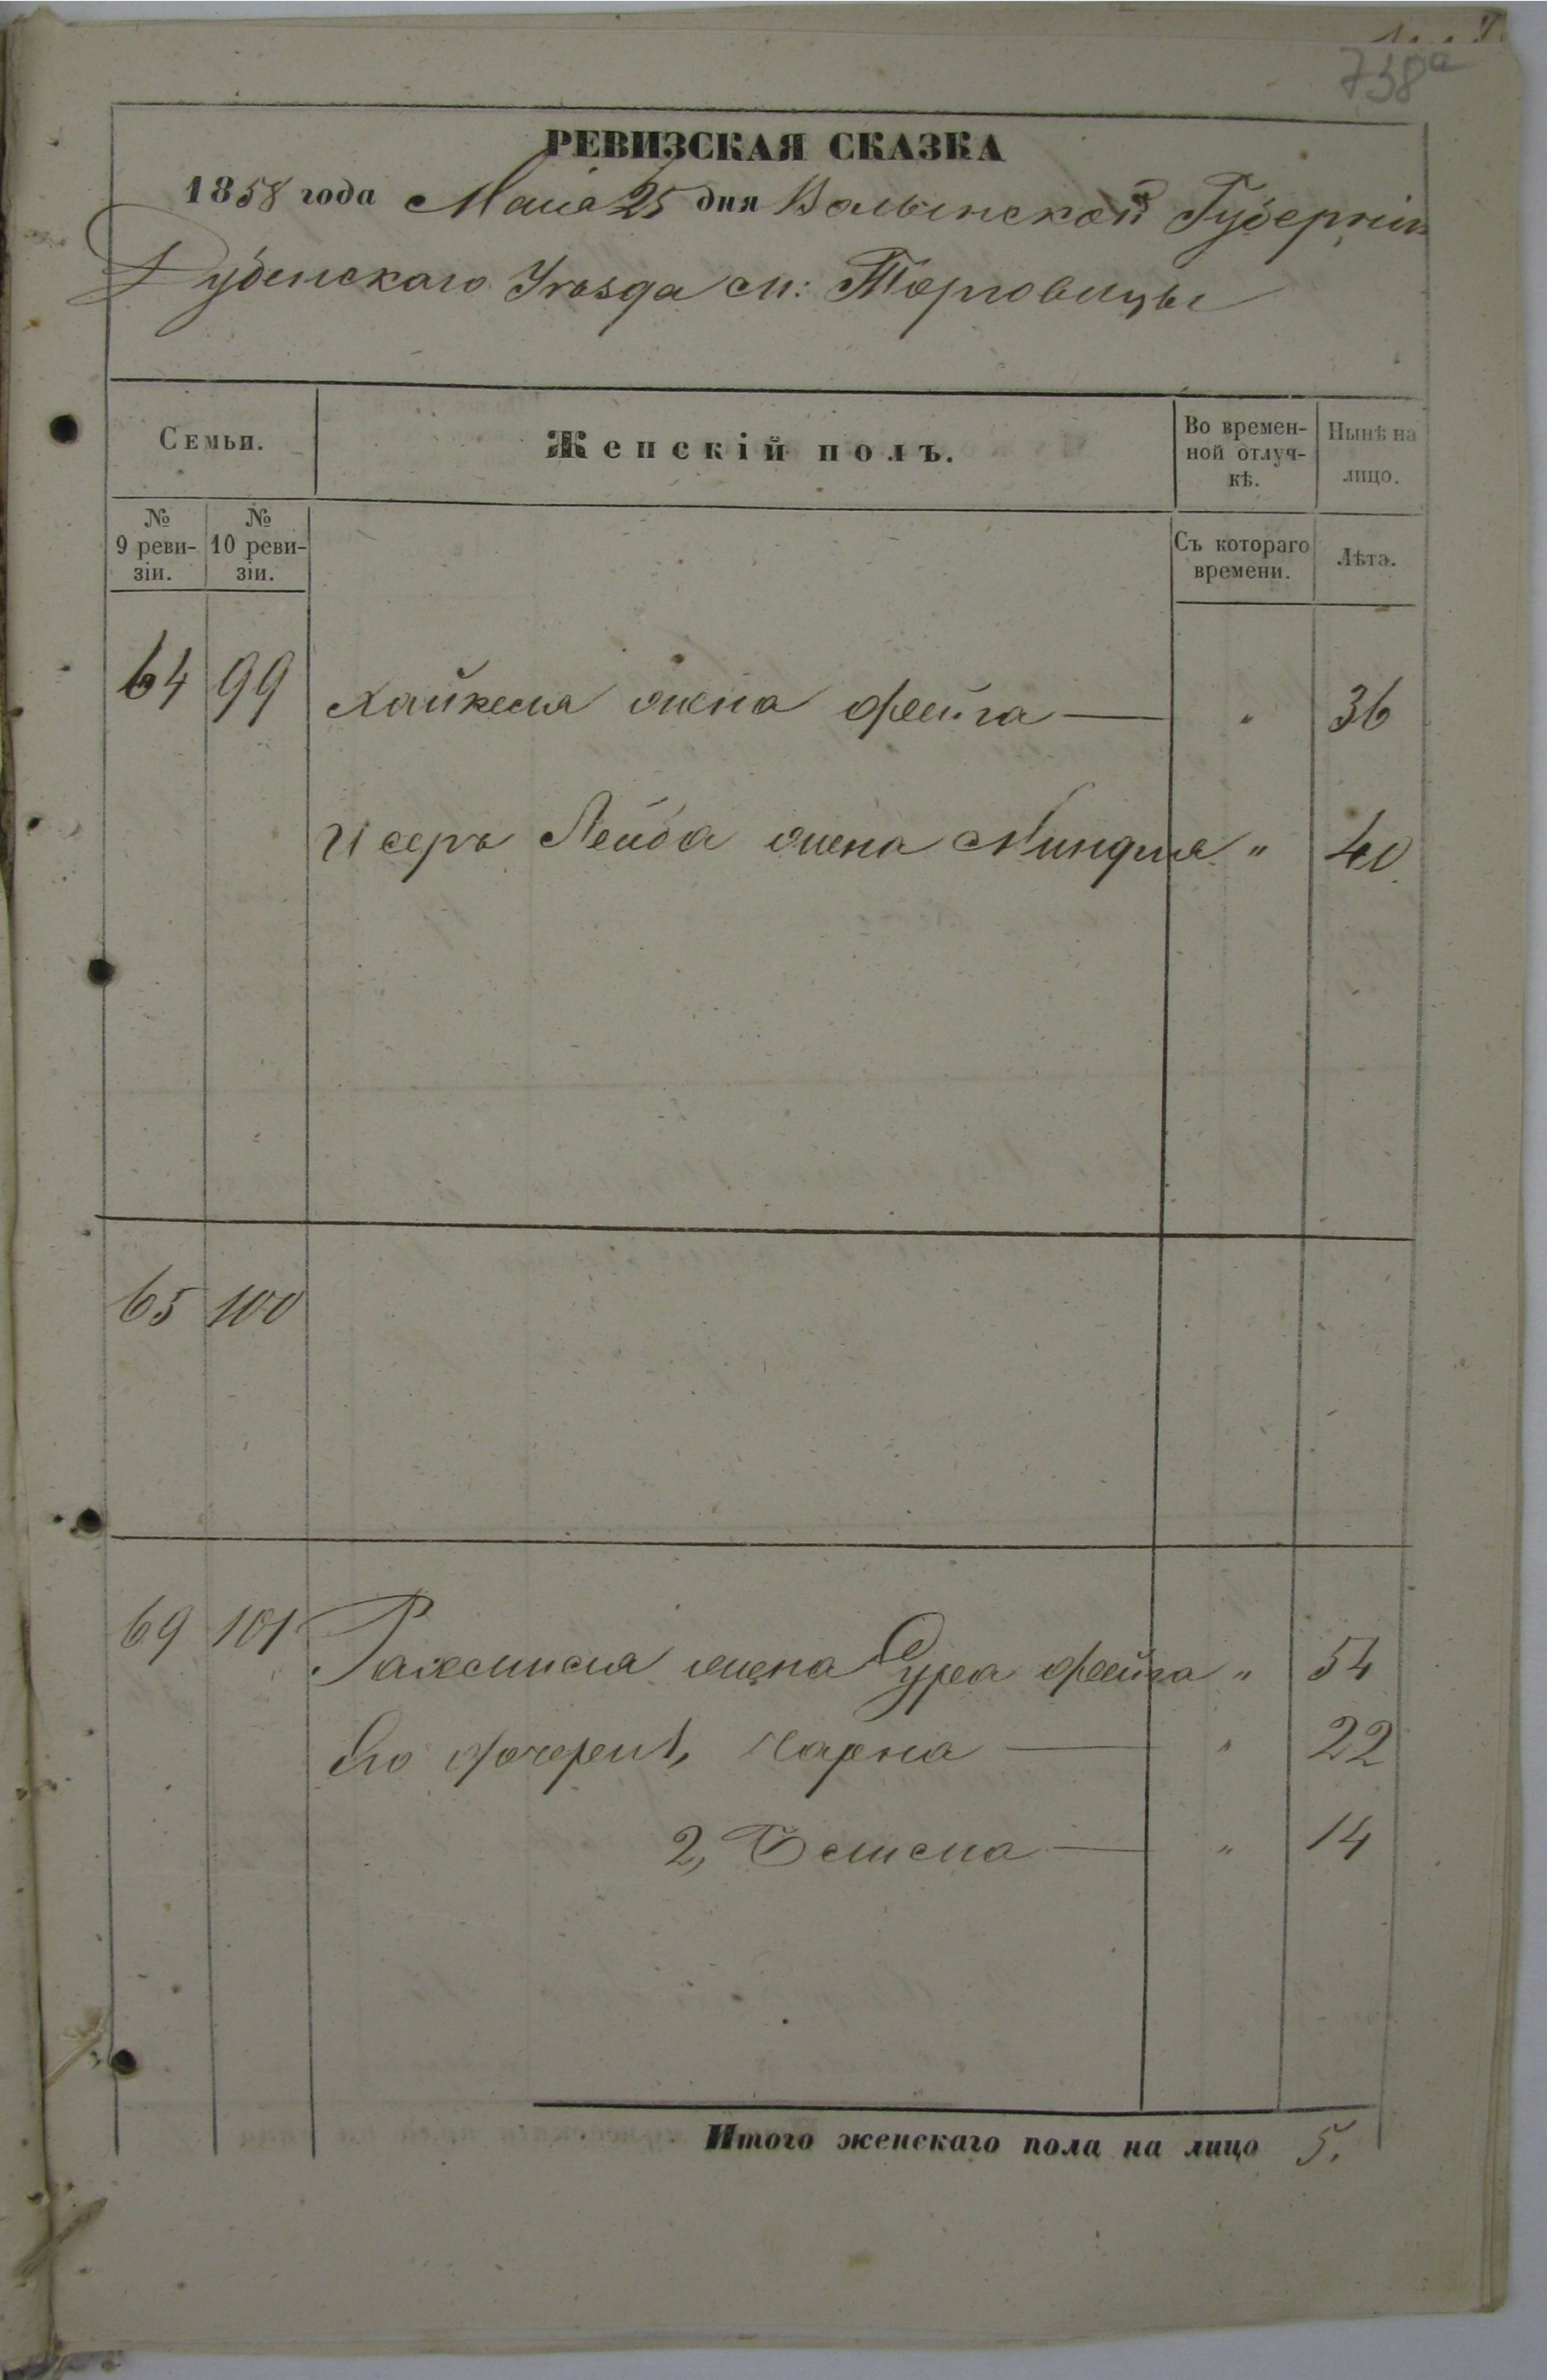 738а
РЕВИЗСКАЯ СКАЗКА
1858 года Маія 25 дня Волынской Губерніи
Дубенскаго Уѣзда м: Торговицы
Семьи.
Женскій полъ.
Во времен-
ной отлуч-
кѣ.
Нынѣ на
лицо.
№
9 реви-
зіи.
№
10 реви-
зіи.
Съ котораго
времени.
Лѣта.
64 99 Хайкеля жена Фейга — " 36
Исеръ Лейба жена Миндля " 40
65 100
69 101 жена Сура Фейга " 54
Его дочери 1, Чарна — " 22
2, Бейла — " 14
Итого женскаго пола на лицо 5.